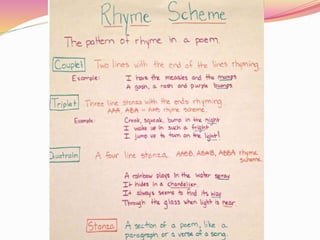 Rhyme Scheme
The pattern of rhyme in a poem.
Couplet Two lines with the end of the lines rhyming.
Example: I have the measles and the mumps
A gash, a rash and purple bumps.
Triplet Three line stanza with the ends rhyming.
AAA, ABA rhyme scheme.
Example: Creak, squeak, bump in the night
I wake up in such a fright
I jump up to turn on the light!
Quatrain A four line stanza. AABB, ABAB, ABBA rhyme
scheme.
A rainbow plays in the water spray
It hides in a chandelier.
It always seems to find its way
Through the glass when light is near
Stanza A section of a poem, like a
paragraph or a verse of a song.